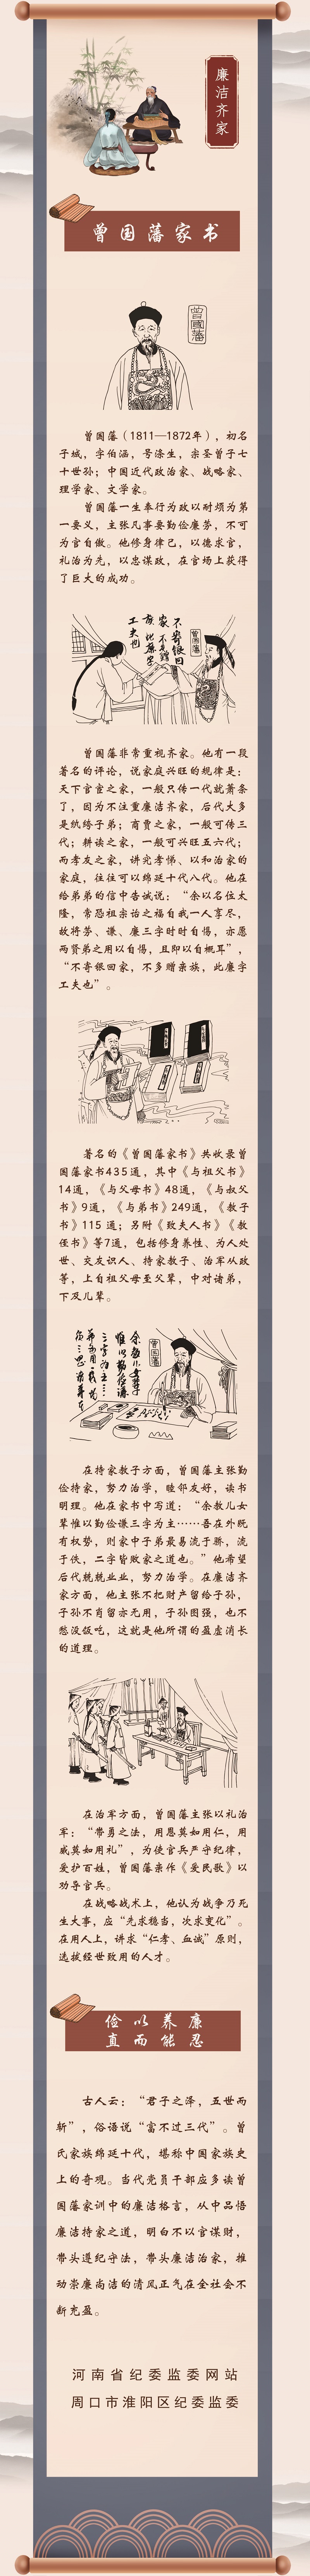 廉洁齐家
曾国藩家书
曾國藩
曾国藩（1811—1872年），初名
子城，字伯涵，号涤生，宗圣曾子七
十世孙；中国近代政治家、战略家、
理学家、文学家。
曾国藩一生奉行为政以耐烦为第
一要义，主张凡事要勤俭廉劳，不可
为官自傲。他修身律己，以德求官，
礼治为先，以忠谋政，在官场上获得
了巨大的成功。
不寄银回
家不多赠
亲族此廉字
工夫也
曾國藩
曾国藩非常重视齐家。他有一段
著名的评论，说家庭兴旺的规律是：
天下官宦之家，一般只传一代就萧条
了，因为不注重廉洁齐家，后代大多
是纨绔子弟；商贾之家，一般可传三
代；耕读之家，一般可兴旺五六代；
而孝友之家，讲究孝悌、以和治家的
家庭，往往可以绵延十代八代。他在
给弟弟的信中告诫说：“余以名位太
隆，常恐祖宗诒之福自我一人享尽，
故将劳、谦、廉三字时时自惕，亦愿
两贤弟之用以自惕，且即以自概耳”，
“不寄银回家，不多赠亲族，此廉字
工夫也”。
著名的《曾国藩家书》共收录曾
国藩家书435通，其中《与祖父书》
14通，《与父母书》48通，《与叔父
书》9通，《与弟书》249通，《教子
书》115 通；另附《致夫人书》《教
侄书》等7通，包括修身养性、为人处
世、交友识人、持家教子、治军从政
等，上自祖父母至父辈，中对诸弟，
下及儿辈。
余教儿女辈
惟以勤俭谦
三字为主
曾國藩
在持家教子方面，曾国藩主张勤
俭持家，努力治学，睦邻友好，读书
明理。他在家书中写道：“余教儿女
辈惟以勤俭谦三字为主……吾在外既
有权势，则家中子弟最易流于骄，流
于佚，二字皆败家之道也。”他希望
后代兢兢业业，努力治学。在廉洁齐
家方面，他主张不把财产留给子孙，
子孙不肖留亦无用，子孙图强，也不
愁没饭吃，这就是他所谓的盈虚消长
的道理。
在治军方面，曾国藩主张以礼治
军：“带勇之法，用恩莫如用仁，用
威莫如用礼”，为使官兵严守纪律，
爱护百姓，曾国藩亲作《爱民歌》以
劝导官兵。
在战略战术上，他认为战争乃死
生大事，应“先求稳当，次求变化”。
在用人上，讲求“仁孝、血诚”原则，
选拔经世致用的人才。
俭以养廉
直而能忍
古人云：“君子之泽，五世而
斩”，俗语说“富不过三代”。曾
氏家族绵延十代，堪称中国家族史
上的奇观。当代党员干部应多读曾
国藩家训中的廉洁格言，从中品悟
廉洁持家之道，明白不以官谋财，
带头遵纪守法，带头廉洁治家，推
动崇廉尚洁的清风正气在全社会不
断充盈。
河南省纪委监委网站
周口市淮阳区纪委监委